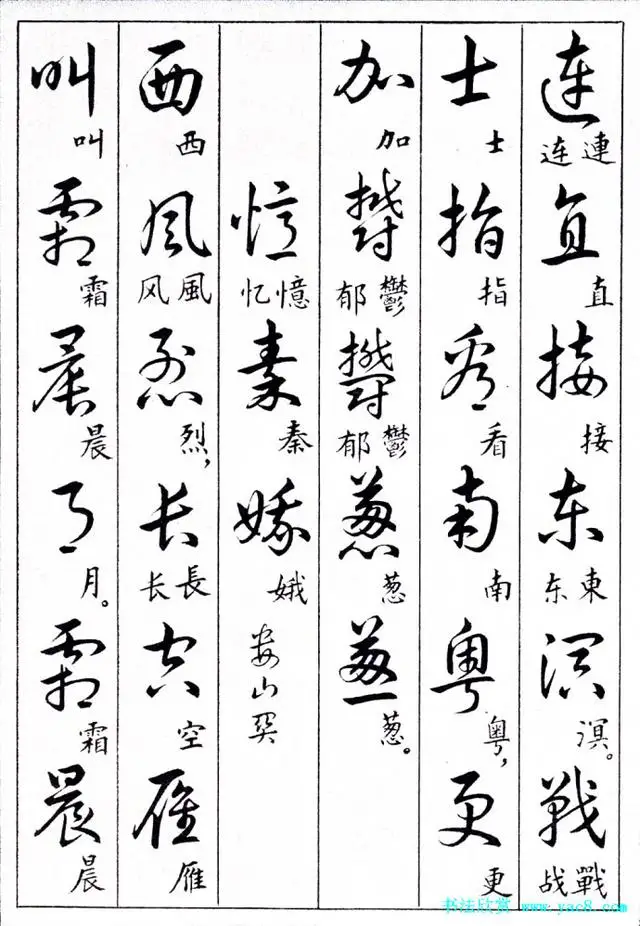 连 连 連 直 直 接 接 东 东 東 溟 溟。 戰 战 戰
士 士 指 指 看 看 南 南 粤 粤, 更 更
加 加 鬱 郁 鬱 鬱 郁 鬱 葱 葱 葱 葱。
憶 忆 憶 秦 秦 娥 娥 娄山关
西 西 風 风 風 烈 烈, 长 长 長 空 空 雁 雁
叫 叫 霜 霜 晨 晨 月 月。 霜 霜 晨 晨
书法欣赏 www.yac8.com